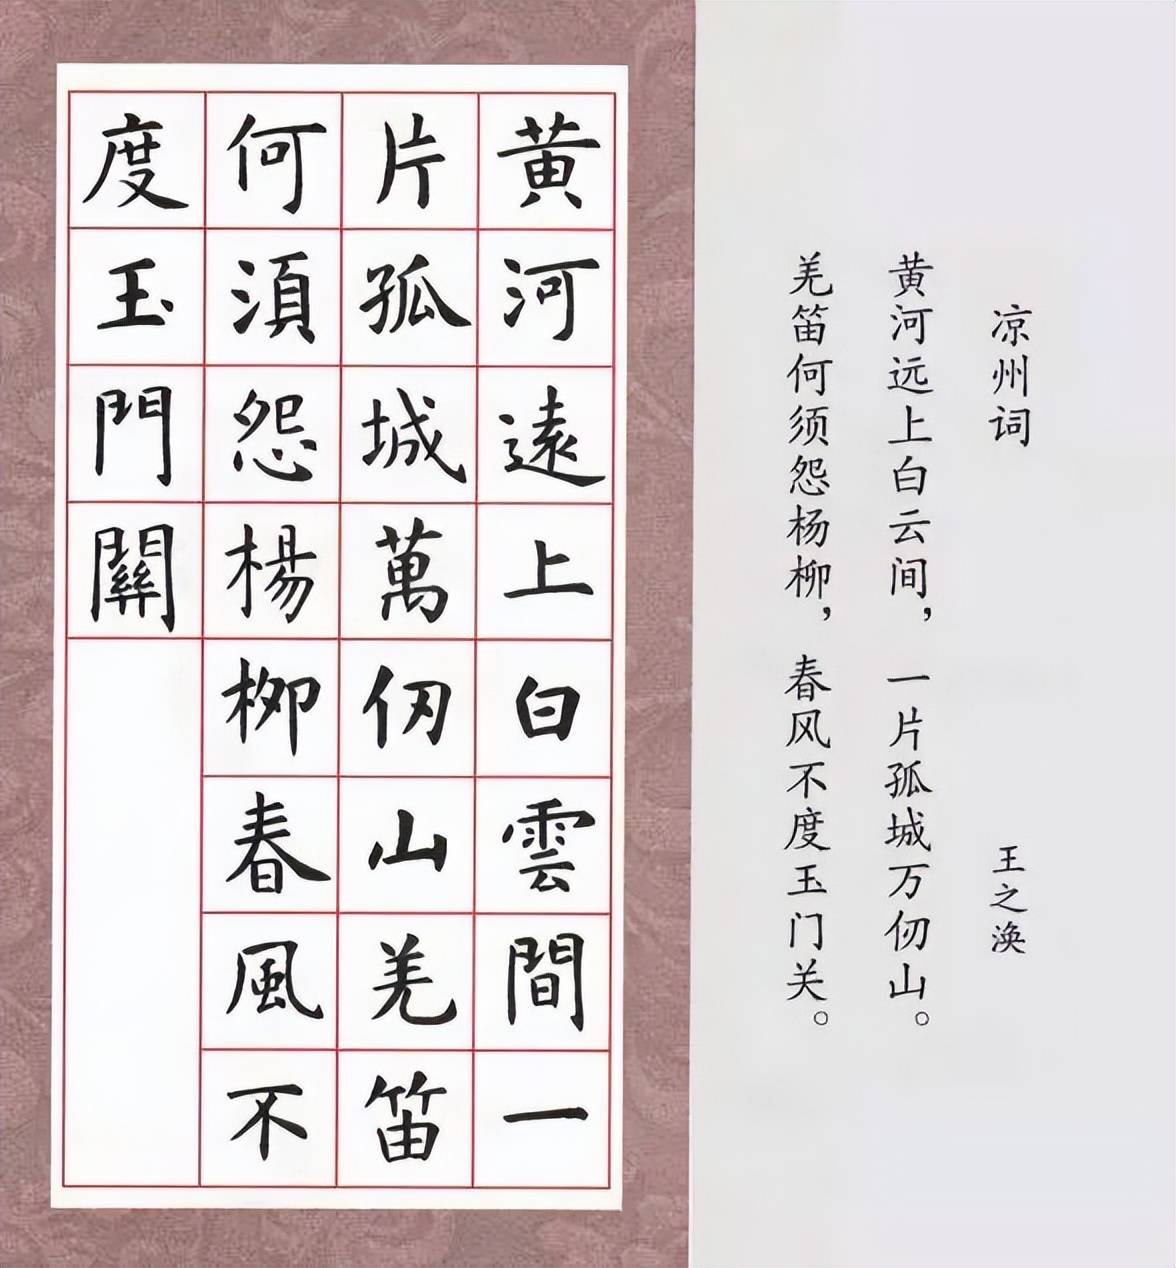 黄河遠上白雲間一
片孤城萬仞山羌笛
何須怨楊柳春風不
度玉門關
凉州词
王之涣
黄河远上白云间，一片孤城万仞山。
羌笛何须怨杨柳，春风不度玉门关。